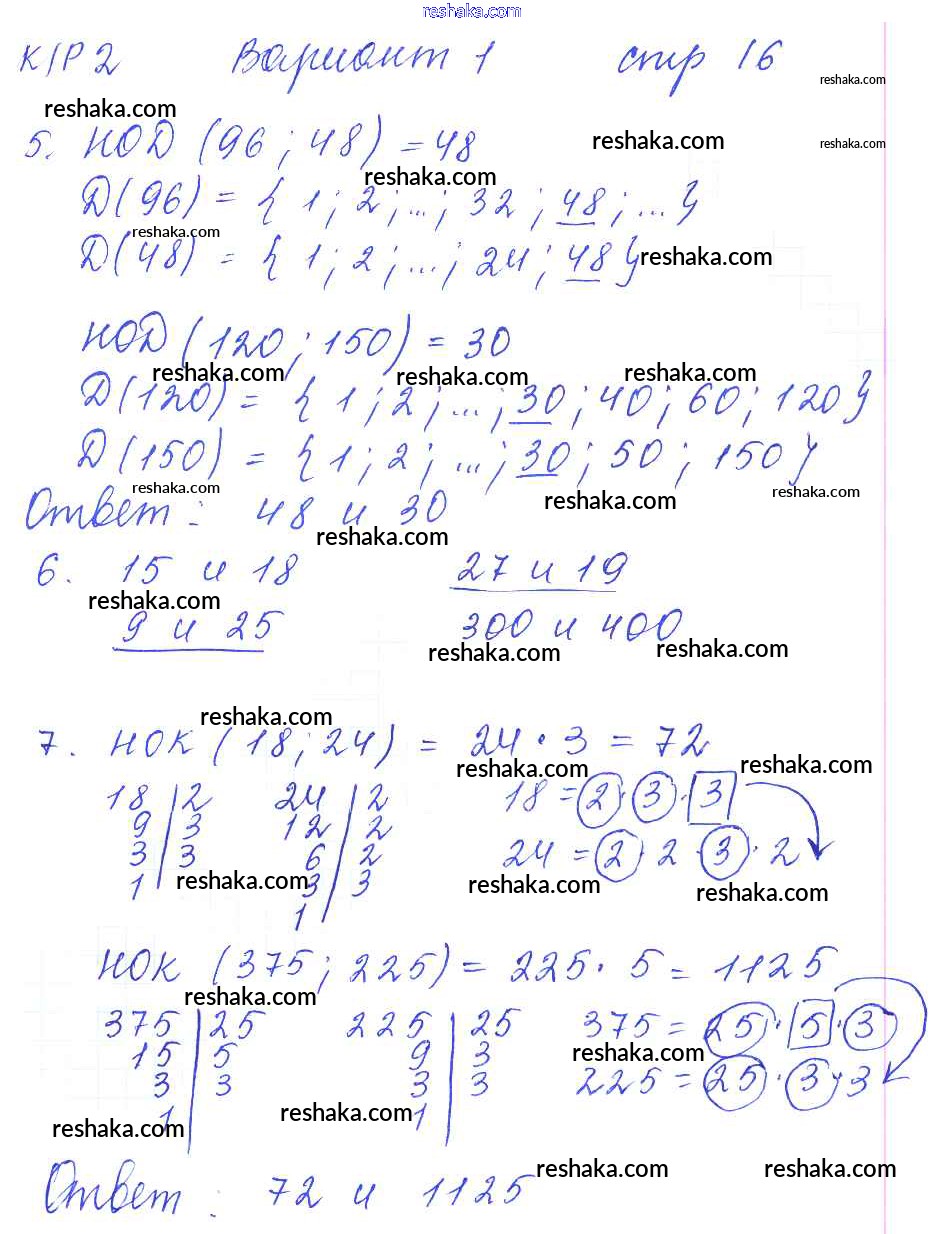 reshaka.com
К/Р 2 Вариант 1 стр 16
reshaka.com
reshaka.com
5. НОД (96 ; 48) = 48
reshaka.com
reshaka.com
reshaka.com
Д(96) = { 1 ; 2 ; ... ; 32 ; 48 ; ... }
reshaka.com
Д(48) = { 1 ; 2 ; ... ; 24 ; 48 }
reshaka.com
НОД (120 ; 150) = 30
reshaka.com
reshaka.com
reshaka.com
Д(120) = { 1 ; 2 ; ... ; 30 ; 40 ; 60 ; 120 }
Д(150) = { 1 ; 2 ; ... ; 30 ; 50 ; 150 }
reshaka.com
reshaka.com
reshaka.com
Ответ : 48 и 30
reshaka.com
6. 15 и 18 27 и 19
reshaka.com
9 и 25 300 и 400
reshaka.com
reshaka.com
reshaka.com
7. НОК ( 18 ; 24 ) = 24 · 3 = 72
reshaka.com
reshaka.com
18 | 2 24 | 2 18 = 2 · 3 · 3
9 | 3 12 | 2
3 | 3 6 | 2 24 = 2 · 2 · 3 · 2
1 3 | 3
reshaka.com
reshaka.com
reshaka.com
1
НОК (375 ; 225) = 225 · 5 = 1125
reshaka.com
375 | 25 225 | 25 375 = 25 · 5 · 3
15 | 5 9 | 3
reshaka.com
3 | 3 3 | 3 225 = 25 · 3 · 3
1 1
reshaka.com
reshaka.com
reshaka.com
reshaka.com
Ответ : 72 и 1125